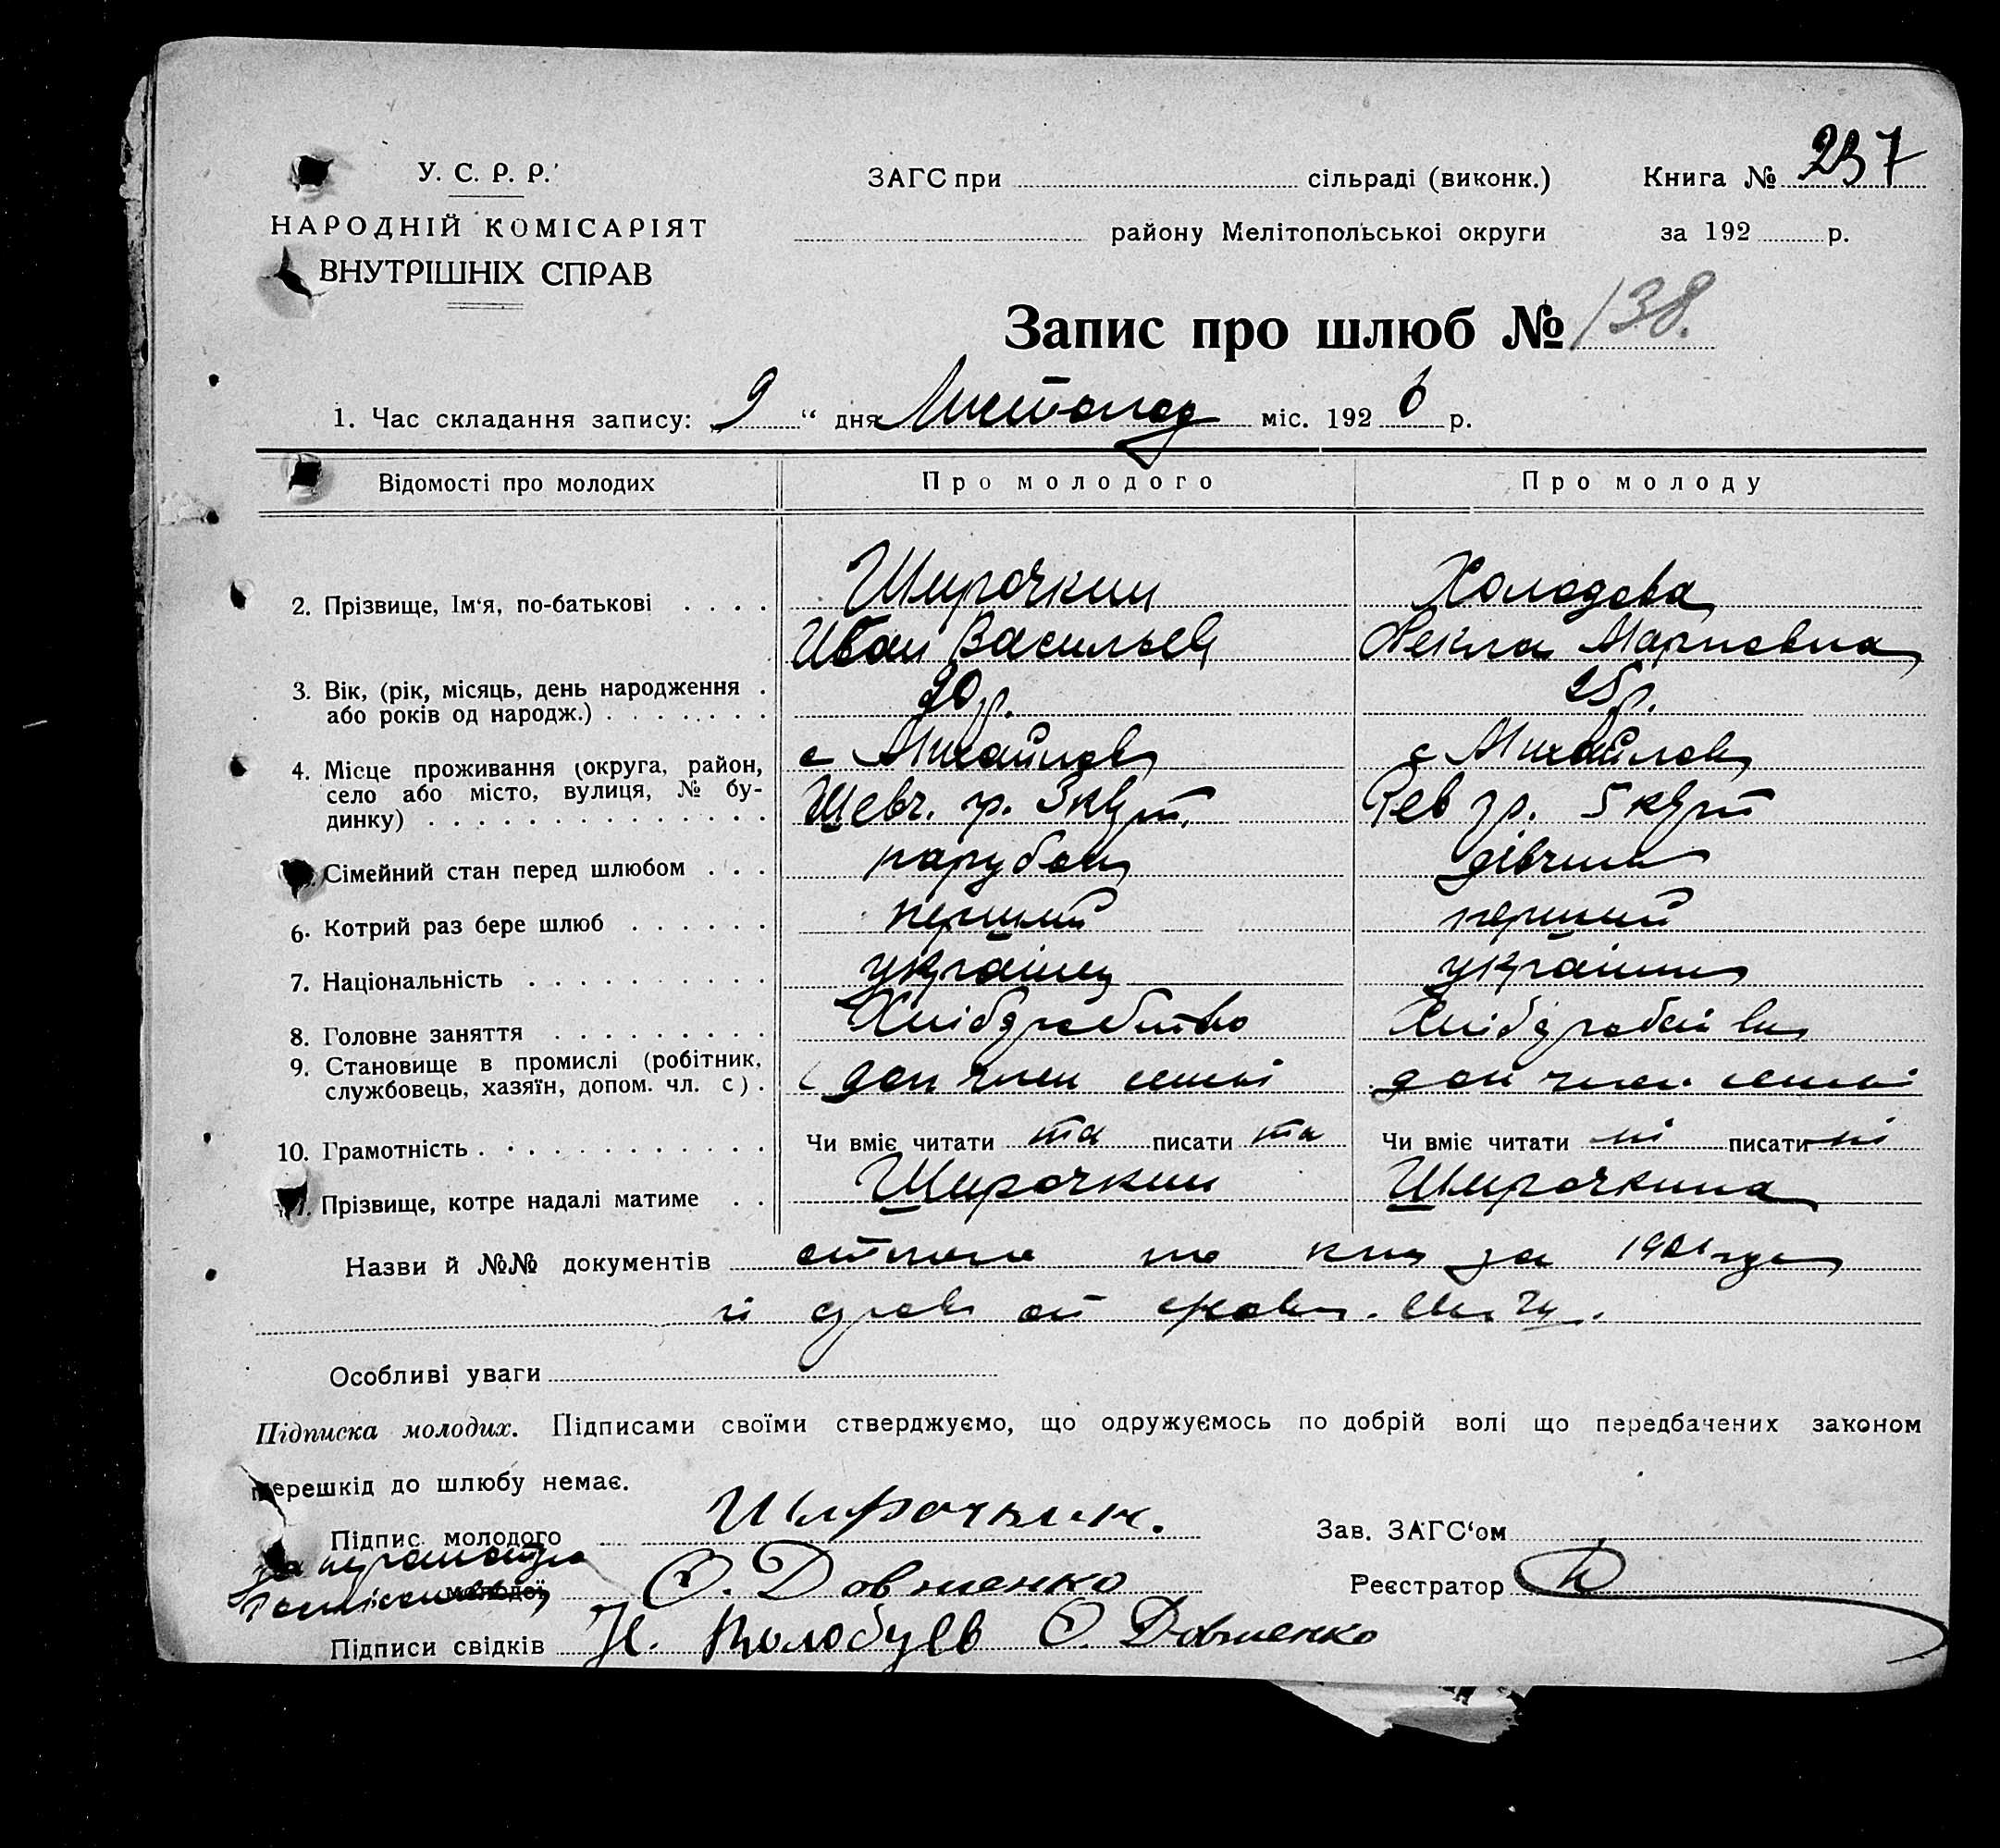 У. С. Р. Р.
НАРОДНІЙ КОМІСАРІЯТ
ВНУТРІШНІХ СПРАВ
ЗАГС при сільраді (виконк.)
району Мелітопольської округи
Книга № 237
за 192 р.
Запис про шлюб № 138.
1. Час складання запису: „9“ дня Листопад міс. 1926 р.
Відомості про молодих Про молодого Про молоду
2. Прізвище, Ім'я, по-батькові . . . . Широчкин Холодова
Иван Васильев Текла Марковна
3. Вік, (рік, місяць, день народження . 20 р. 25 р.
або років од народж.) . . . . . . .
4. Місце проживання (округа, район, с Михайлов с Михайлов
село або місто, вулиця, № бу- Шевч. гр. 3 Рев гр. 5
динку) . . . . . . . . . . . . . .
Сімейний стан перед шлюбом . . . парубок дівчина
6. Котрий раз бере шлюб . . . . . . перший перший
7. Національність . . . . . . . . . . українец украинка
8. Головне заняття . . . . . . . . . Хлібробство
9. Становище в промислі (робітник, доп член семьі доп член семьі
службовець, хазяїн, допом. чл. с) .
10. Грамотність . . . . . . . . . . . . Чи вміє читати та писати та Чи вміє читати ні писати ні
Прізвище, котре надалі матиме . . Широчкин Широчкина
Назви й №№ документів за 1901
Особливі уваги
Підписка молодих. Підписами своїми стверджуємо, що одружуємось по добрій волі що передбачених законом
перешкід до шлюбу немає.
Підпис молодого Широчкин. Зав. ЗАГС'ом
молодої О. Довженко Реєстратор
Підписи свідків Н. Колобуев О. Довженко